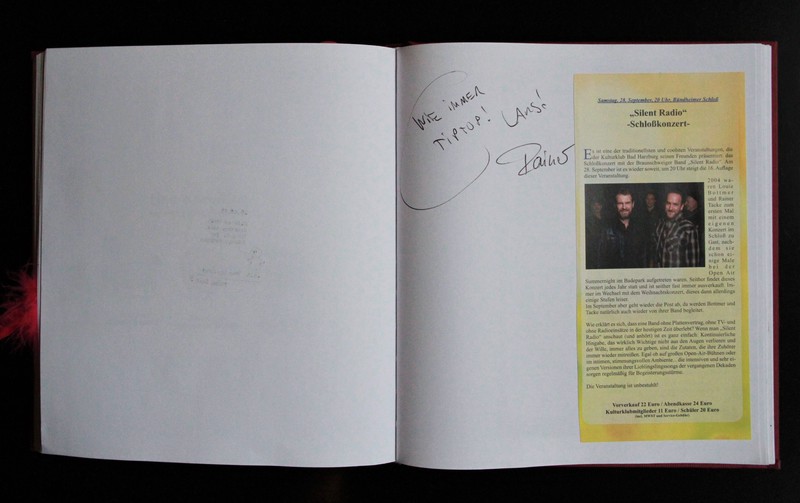 WIE IMMER
TIPTOP!
LARS!
Rainer
Samstag, 28. September, 20 Uhr, Bündheimer Schloß
„Silent Radio“
-Schloßkonzert-
Es ist eine der traditionellsten und coolsten Veranstaltungen, die
der Kulturklub Bad Harzburg seinen Freunden präsentiert: das
Schloßkonzert mit der Braunschweiger Band „Silent Radio“. Am
28. September ist es wieder soweit, um 20 Uhr steigt die 16. Auflage
dieser Veranstaltung.
2004 wa-
ren Louis
Bottmer
und Rainer
Tacke zum
ersten Mal
mit einem
eigenen
Konzert im
Schloß zu
Gast, nach-
dem sie
schon ei-
nige Male
bei der
Open Air
Summernight im Badepark aufgetreten waren. Seither findet dieses
Konzert jedes Jahr statt und ist seither fast immer ausverkauft. Im-
mer im Wechsel mit dem Weihnachtskonzert, dieses dann allerdings
einige Stufen leiser.
Im September aber geht wieder die Post ab, da werden Bottmer und
Tacke natürlich auch wieder von ihrer Band begleitet.
Wie erklärt es sich, dass eine Band ohne Plattenvertrag, ohne TV- und
ohne Radioeinsätze in der heutigen Zeit überlebt? Wenn man „Silent
Radio“ anschaut (und anhört) ist es ganz einfach: Kontinuierliche
Hingabe, das wirklich Wichtige nicht aus den Augen verlieren und
der Wille, immer alles zu geben, sind die Zutaten, die ihre Zuhörer
immer wieder mitreißen. Egal ob auf großen Open Air-Bühnen oder
im intimen, stimmungsvollen Ambiente... die intensiven und sehr ei-
genen Versionen ihrer Lieblingslingssongs der vergangenen Dekaden
sorgen regelmäßig für Begeisterungsstürme.
Die Veranstaltung ist unbestuhlt!
Vorverkauf 22 Euro / Abendkasse 24 Euro
Kulturklubmitglieder 11 Euro / Schüler 20 Euro